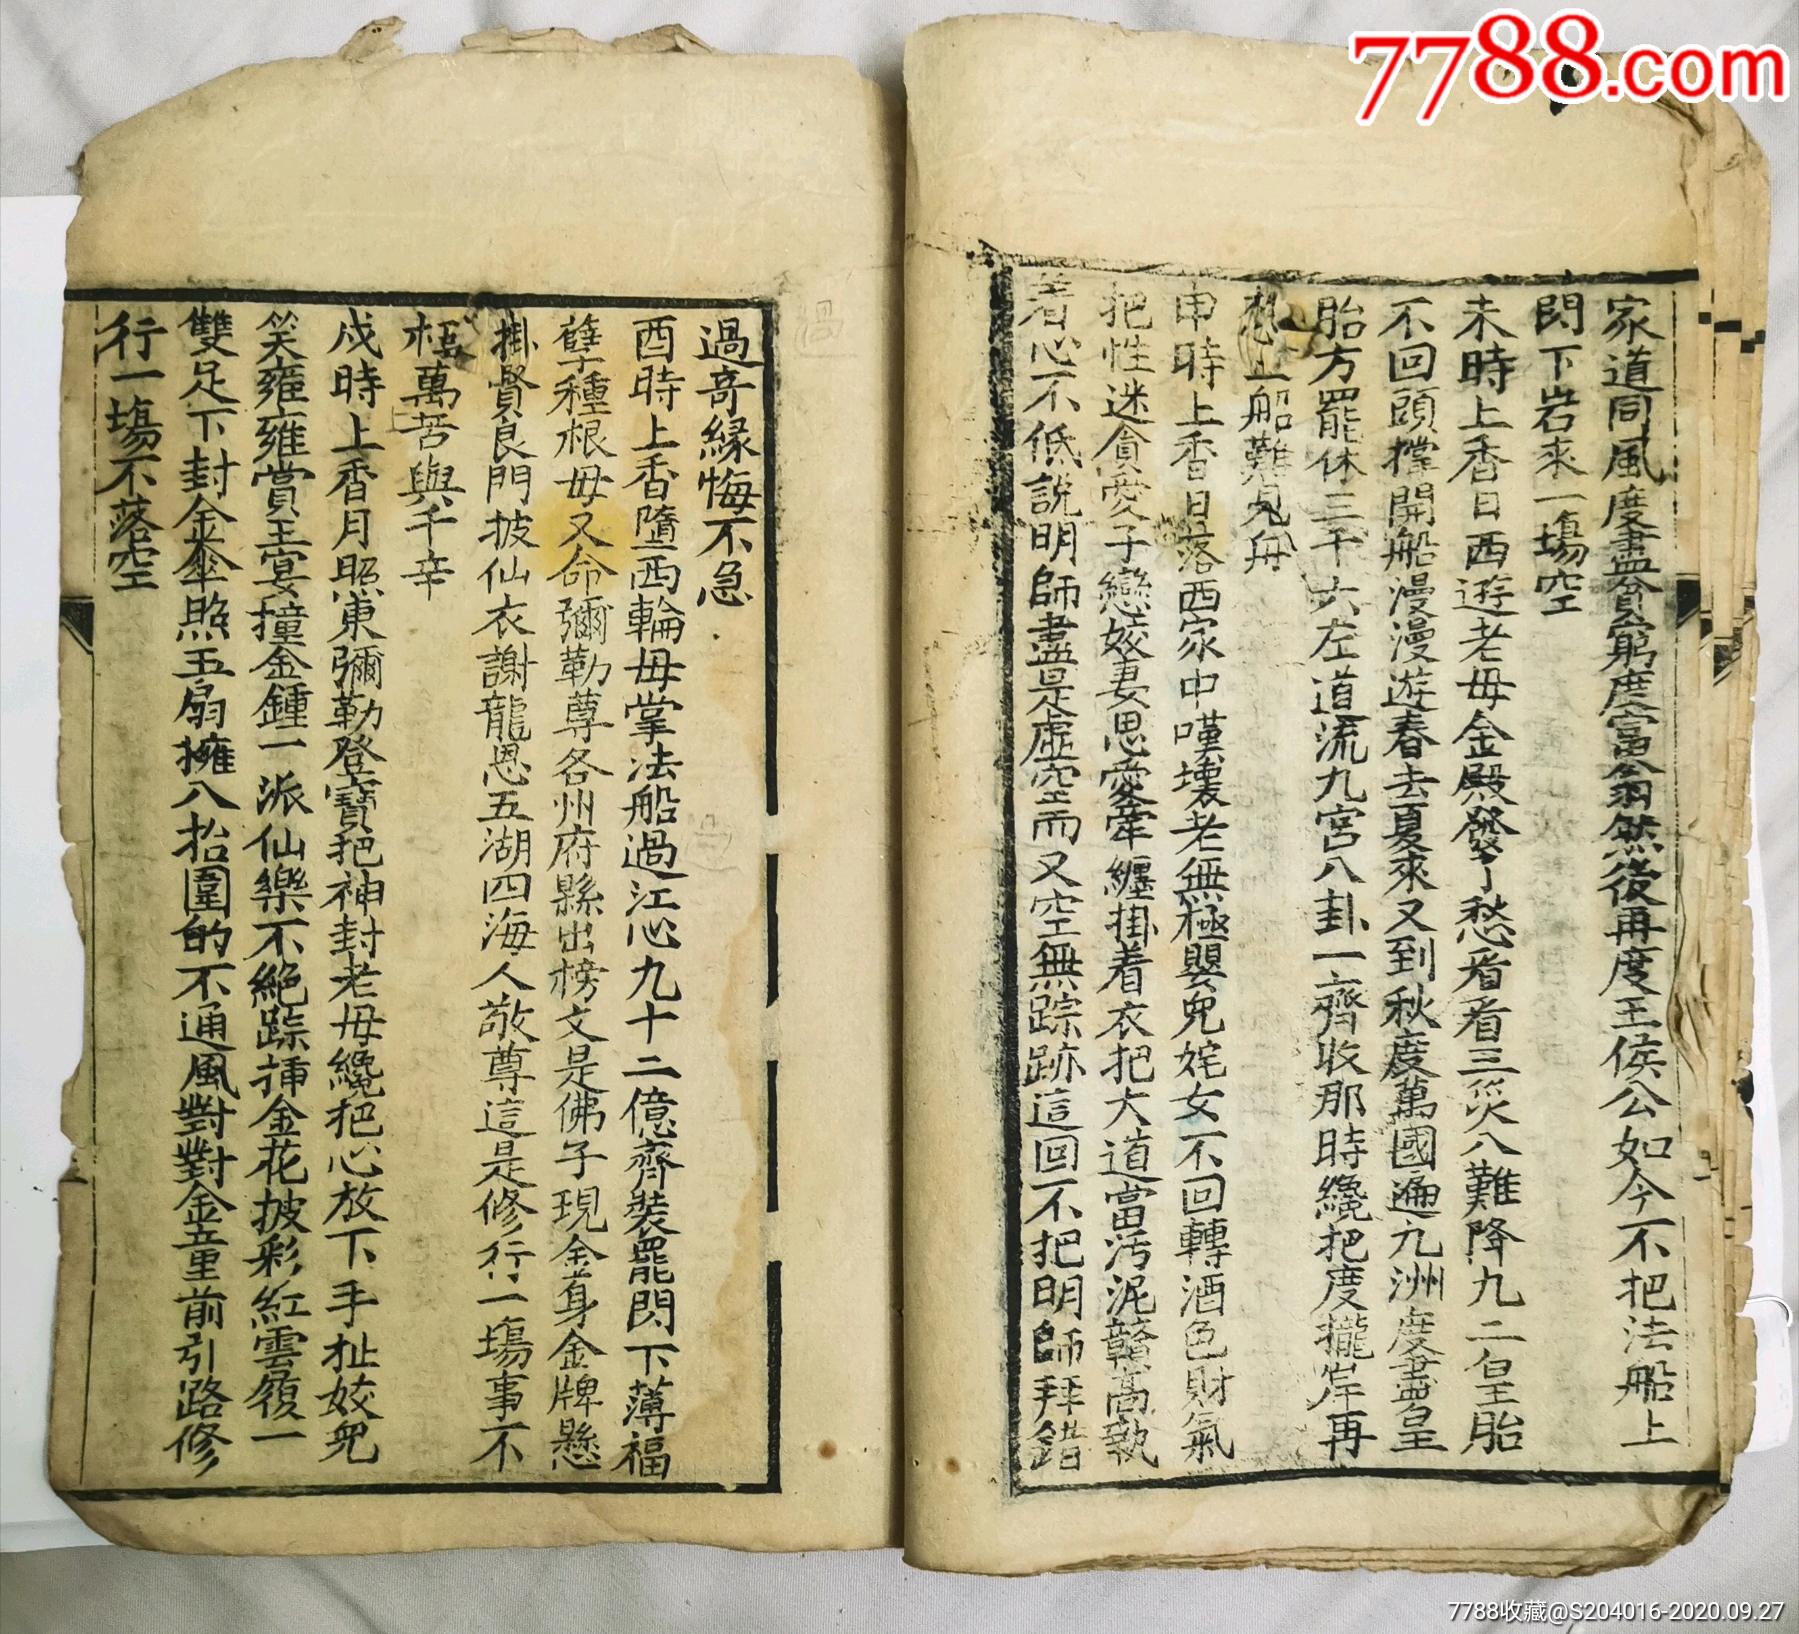 7788.com
家道同風度盡貧窮度富翁然後再度王侯公如今不把法船上
閃下岩來一塲空
未時上香日西遊老母金殿發了愁看看三災八難降九二皇胎
不回頭撑開船漫漫遊春去夏來又到秋度萬國遍九洲度盡皇
胎方罷休三千六左道流九宮八卦一齊收那時纔把度攏岸再
想上船難見舟
申時上香日落西家中嘆壞老無極嬰兒姹女不回轉酒色財氣
把性迷貪愛子戀姣妻思愛牽纏掛着衣把大道當汚泥
着心不低說明師盡是虛空而又空無踪跡這回不把明師拜錯
過奇緣悔不急
酉時上香墮西輪母掌法船過江心九十二億齊裝罷閃下薄福
孽種根母又命彌勒尊各州府縣出榜文是佛子現金身金牌懸
掛賢良門披仙衣謝龍恩五湖四海人敬尊這是修行一塲事不
枉萬苦與千辛
戍時上香月照東彌勒登寶把神封老母纔把心放下手扯姣兒
笑雍雍賞王宴撞金鍾一派仙樂不絕踪揷金花披彩紅雲履一
雙足下封金傘照五扇擁八抬圍的不通風對對金童前引路修
行一塲不落空
7788收藏@S204016-2020.09.27